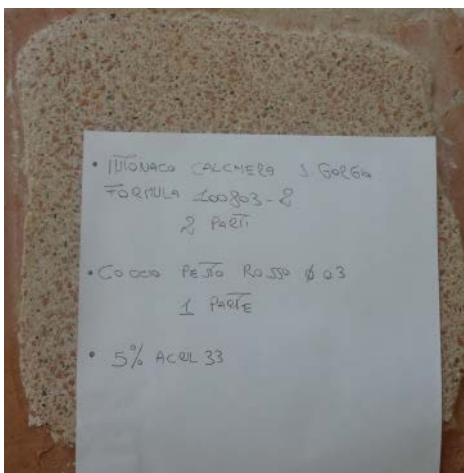 • INTONACO CALCHERA S. GORGO
FORMULA 100803-2
2 PARTI
• COCCIO PESTO ROSSO ø 03
1 PARTE
• 5% ACRIL 33